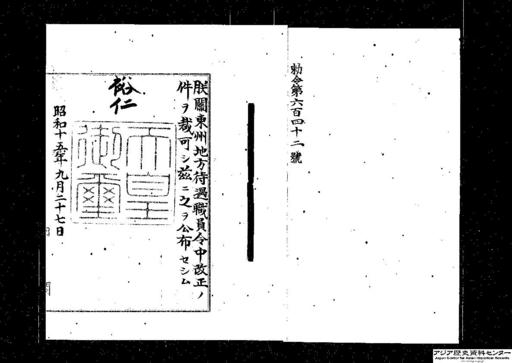 勅令第六百四十二號
朕關東州地方待遇職員令中改正ノ
件ヲ裁可シ茲ニ之ヲ公布セシム
裕仁
天皇
御璽
昭和十五年九月二十七日
アジア歴史資料センター
Japan Center for Asian Historical Records